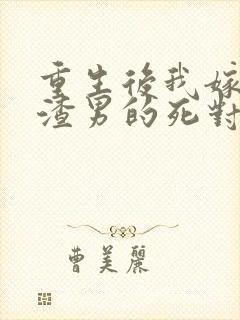 重生後我嫁
渣男的死對
曹美麗